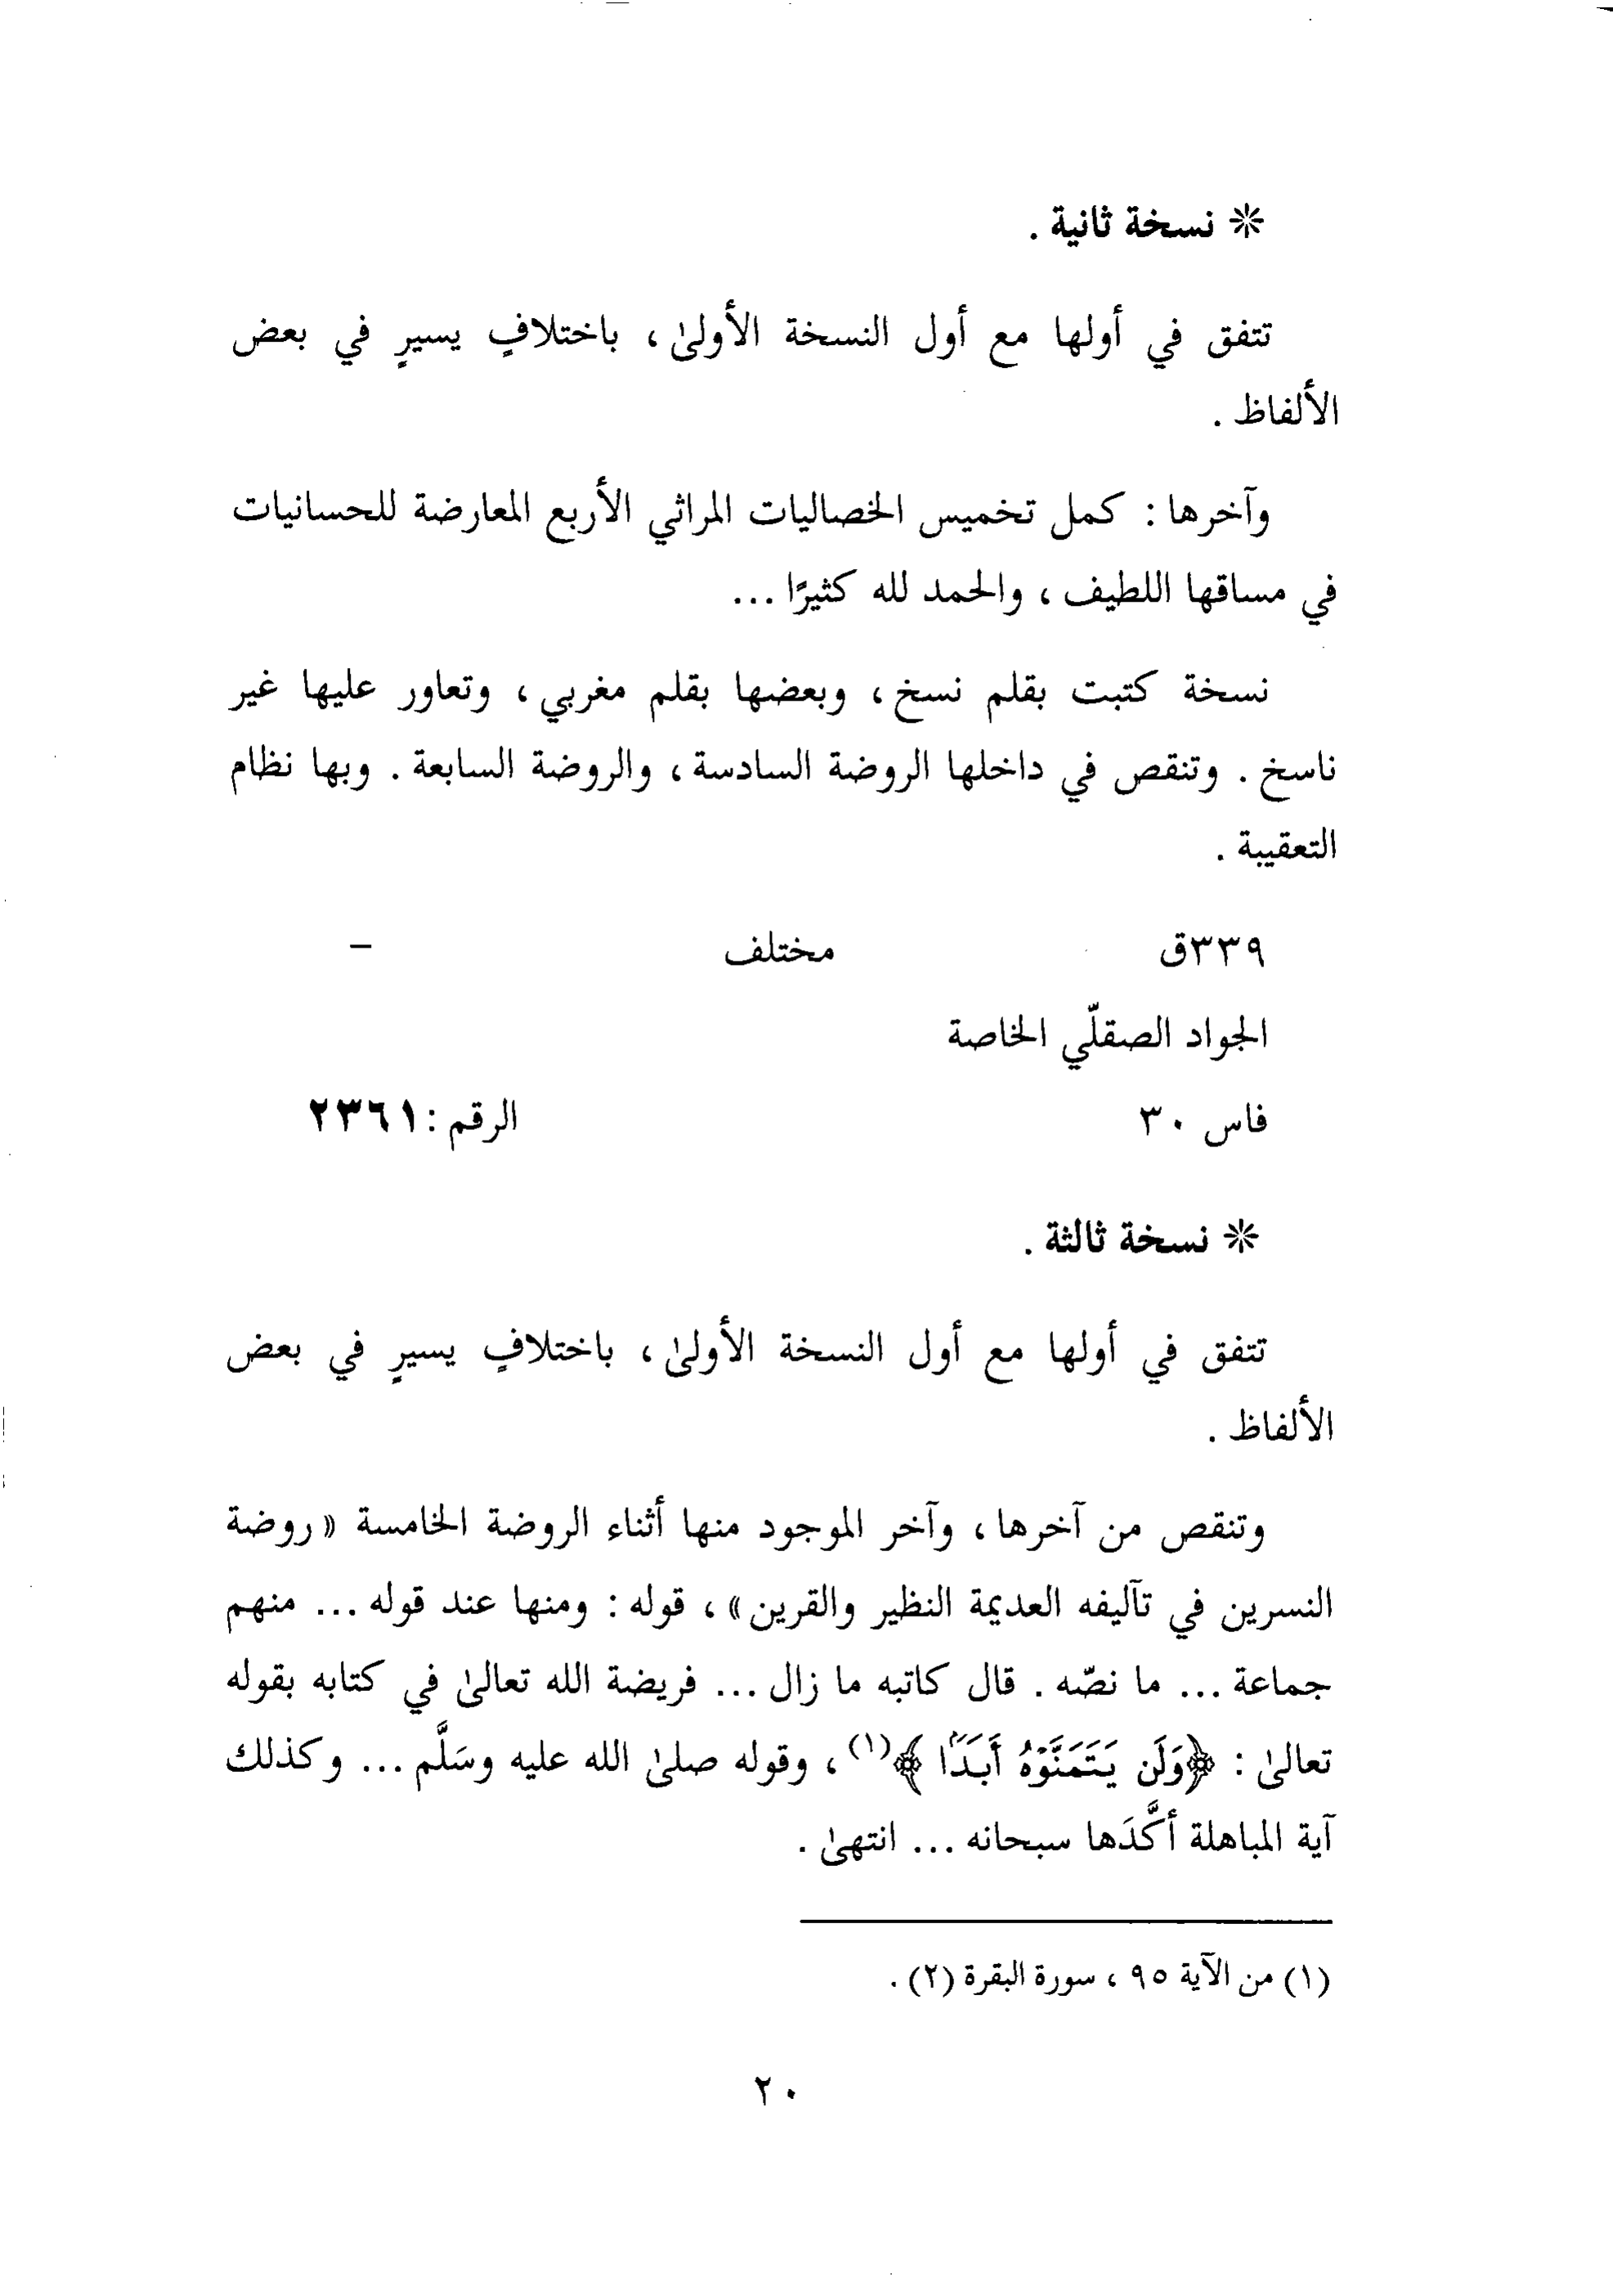 * نسخة ثانية .
تتفق في أولها مع أول النسخة الأولىٰ ، باختلافٍ يسيرٍ في بعض
الألفاظ .
وآخرها : كمل تخميس الخصاليات المراثي الأربع المعارضة للحسانيات
في مساقها اللطيف ، والحمد لله كثيرًا ...
نسخة كتبت بقلم نسخ ، وبعضها بقلم مغربي ، وتعاور عليها غير
ناسخ . وتنقص في داخلها الروضة السادسة ، والروضة السابعة . وبها نظام
التعقيبة .
٣٣٩ق مختلف –
الجواد الصقلّي الخاصة
فاس ٣٠ الرقم : ٢٣٦١
* نسخة ثالثة .
تتفق في أولها مع أول النسخة الأولىٰ ، باختلافٍ يسيرٍ في بعض
الألفاظ .
وتنقص من آخرها ، وآخر الموجود منها أثناء الروضة الخامسة «روضة
النسرين في تآليفه العديمة النظير والقرين» ، قوله : ومنها عند قوله ... منهم
جماعة ... ما نصّه . قال كاتبه ما زال ... فريضة الله تعالىٰ في كتابه بقوله
تعالىٰ : ﴿وَلَن يَتَمَنَّوْهُ أَبَدًا ﴾(١) ، وقوله صلىٰ الله عليه وسَلَّم ... وكذلك
آية المباهلة أكَّدَها سبحانه ... انتهىٰ .
(١) من الآية ٩٥ ، سورة البقرة (٢) .
٢٠